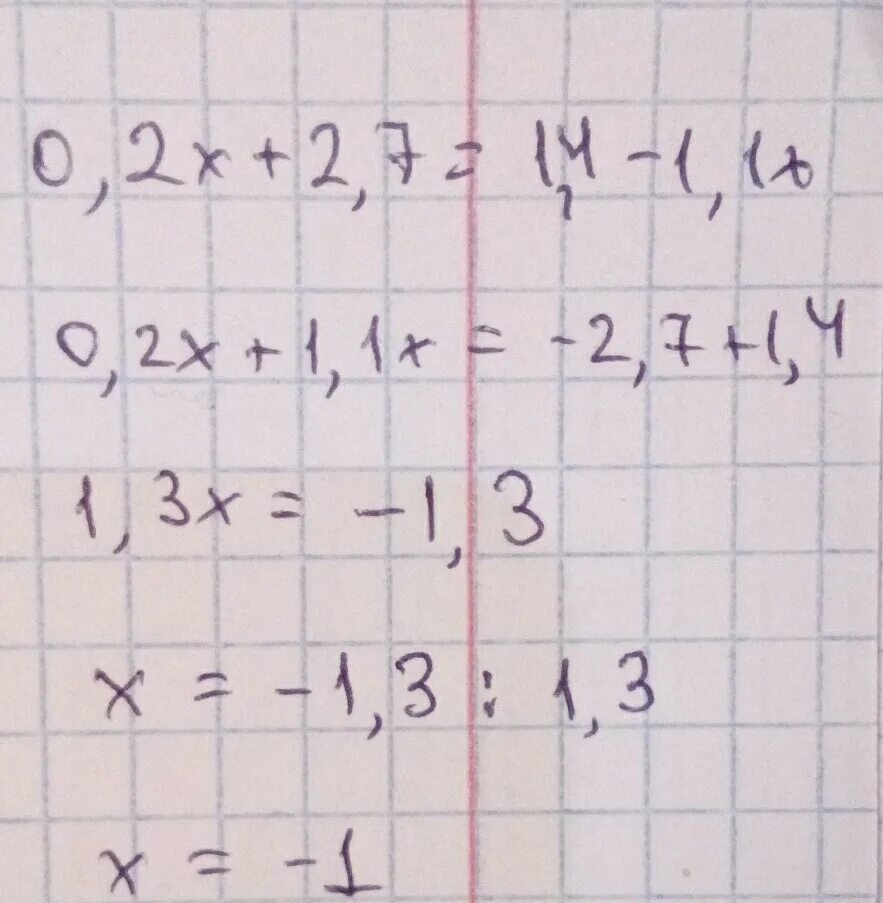 0,2x+2,7=1,4-1,1x
0,2x+1,1x=-2,7+1,4
1,3x=-1,3
x=-1,3:1,3
x=-1